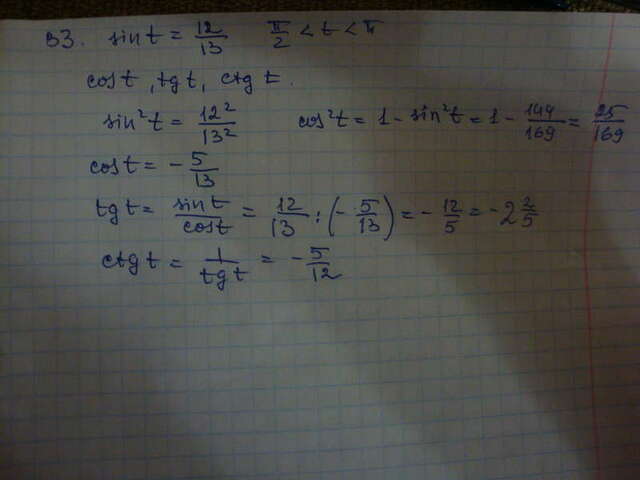 В3. sin t = 12/13 π/2 < t < π
cos t, tg t, ctg t.
sin²t = 12²/13² cos²t = 1 - sin²t = 1 - 144/169 = 25/169
cos t = - 5/13
tg t = sin t/cos t = 12/13 : (- 5/13) = - 12/5 = - 2 2/5
ctg t = 1/tg t = - 5/12